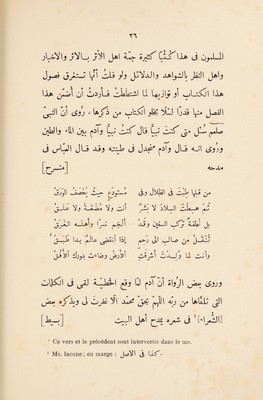 ٢٦
المسلمون فى هذا كُتُبًا كثيرة جمّة اهل الأثر بالاثر والاخبار
واهل النظر بالشواهد والدلائل ولو قلتُ أنّها تستغرق فصول
هذا الكتاب أو توازيها لما اشتططتُ فأردتُ أن أُضمّن هذا
الفصل منها قدرًا لئلّا يخلو الكتاب من ذكرها ، رُوى أنّ النبىّ
صلعم سُئل متى كنت نبيًّا قال كنتُ نبيًّا وآدم بين الماء والطين
ورُوى انه قال وآدم منجدل فى طينته وقد قال العبّاس فى
مدحه [منسرح]
من قبلها طِبْتَ فى الظلال وفى مُستَودَعٍ حيثُ يُخصَفُ الوَرَقُ
ثمّ هبطتَ البلادَ لا بَشَرٌ أنت ولا مُضْغَةٌ ولا عَلَقُ
بل نطفةٌ تركب السفينَ وقد أَلجم نسرًا وأهلَه الغَرَقُ
تُنقَلُ من صالب الى رَحِمٍ إذا انقضى عالمٌ بدا طَبَقُ ¹
وأنت لما وُلِدتَ أشرقتِ الأرضُ وضاءت بنورك الأُفُقُ
وروى بعض الرُّواة أنّ آدم لمّا وقع الخطيئة لقى فى الكلمات
التى تلقّاها من ربّه اللهمّ بحقّ محمّد الّا غفرت لى ويذكره بعض
[الشُّعراء]² فى شعره يمدح أهل البيت [بسيط]
¹ Ce vers et le précédent sont intervertis dans le ms.
² Ms. lacune; en marge : كذا فى الاصل.